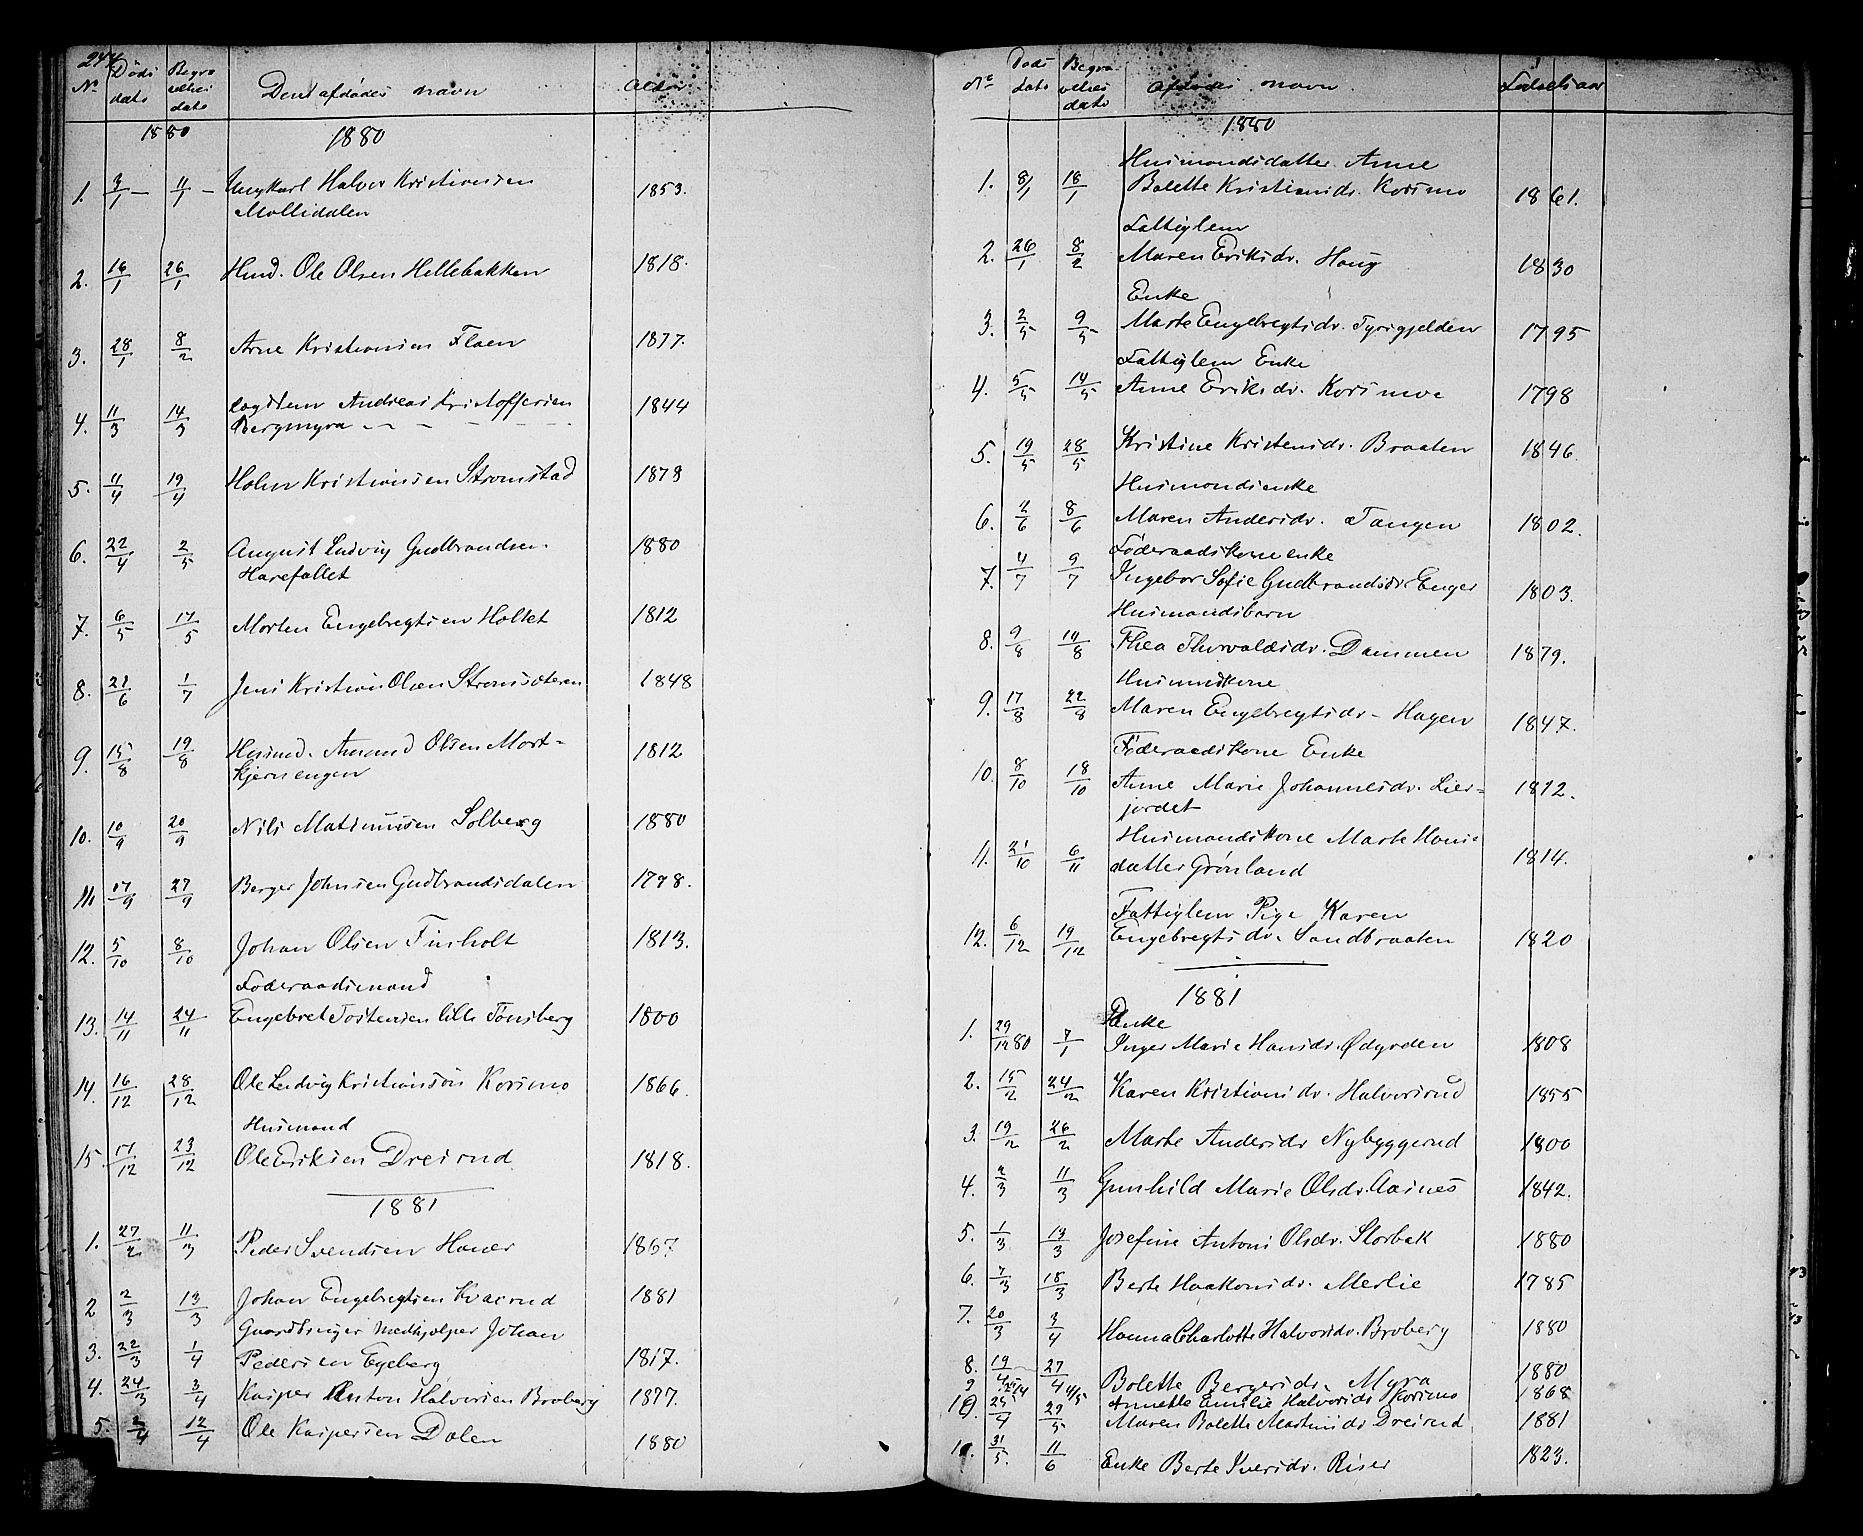 244
No Døds dato Begravelses dato Den afdødes navn Alder
1880 1880
1. 3/1 — 11/1 — Ungkarl Halvor Kristiansen 1853.
Mollidalen
2. 16/1 26/1 Husd. Ole Olsen Hellebakken 1818.
3. 28/1 8/2 Arne Kristiansen Floen 1877.
4. 11/3 14/3 Andreas Kristoffersen 1844
Bergmyra
5. 11/4 19/4 Kristiansen Stromstad 1878
6. 22/4 2/5 August Ludvig Gudbrandsen 1880
Harefallet
7. 6/5 17/5 Morten Engebregtsen Holtet 1812
8. 21/6 1/7 Jens Kristian Olsen Stromsæteren 1848
9. 15/8 19/8 Husmd. Amund Olsen Mort- 1812
kjernengen
10. 10/9 20/9 Nils Matinusen Solberg 1880
11. 17/9 27/9 Berger Johnsen Gudbrandsdalen 1798.
12. 5/10 8/10 Johan Olsen Finholt 1813.
Føderaadsmand
13. 14/11 24/11 Engebret Tostensen lille Tonsberg 1800
14. 16/12 28/12 Ole Ludvig Kristiansen Korsmo 1866.
Husmand
15. 17/12 23/12 Ole Eriksen Dreisrud 1818.
1881
1. 27/2 11/3 Peder Svendsen Haner 1867
2 2/3 13/3 Johan Engebregtsen Kvaisrud 1881
Gaardbruger Medhjælper Johan
3. 22/3 1/4 Pedersen Egeberg 1817.
4. 24/3 3/4 Kasper Anton Halvorsen Broberg 1877.
5. 2/4 12/4 Ole Kaspersen Dalen 1880
No Døds dato Begravelses dato Afdødes navn Fødselsaar
1880
Husmandsdatter Anne
1. 8/1 18/1 Bolette Kristiansdr. Korsmo 1861.
Fattiglem
2. 26/1 8/2 Maren Eriksdr. Haug 1830
Enke
3. 2/5 9/5 Marte Engebregtsdr. Tyrigjelden 1795
Fattiglem Enke
4. 5/5 14/5 Anne Eriksdr. Korsmoe 1798
5. 19/5 28/5 Kristine Kristensdr. Braaten 1846.
Husmandsenke
6. 2/6 8/6 Maren Andersdr. Tangen 1802.
Føderaadskone enke
7. 4/7 9/7 Ingebor Sofie Gudbrandsdr. Enger 1803.
Husmandsbarn
8. 9/8 14/8 Thea Thorvaldsdr. Dammen 1879.
Husmndkone
9. 17/8 22/8 Maren Engebregtsdr. Hagen 1847.
Føderaadskone Enke
10. 8/10 18/10 Anne Marie Johannesdr. Lier- 1812.
jordet
Husmandskone Marte Hans-
11. 21/10 6/11 datter Grønland 1814.
Fattiglem Pige Karen
12. 6/12 19/12 Engebregtsdr. Sandbraaten 1820
1881
Enke
1. 29/12 80 7/1 Inger Marie Hansdr. Ødgrden 1808
2. 15/2 24/2 Karen Kristiansdr. Halvorsrud 1855
3. 19/2 26/2 Marte Andersdr Nybyggerud 1800
4. 2/3 11/3 Gunhild Marie Olsdr. Aasnes 1842.
5. 1/3 13/3 Josefine Antoni Olsdr. Storbak 1880
6. 7/3 18/3 Berte Haakonsdr. Merlie 1785
7. 20/3 3/4 Hanna Charlotte Halvorsdr. Broberg 1880
8. 19/4 27/4 Bolette Bergersdr. Myra 1880
9 25/4 4/5 Annette Emilie Halvorsdr Korsmo 1868
10. 25/4 29/5 Maren Bolette Martinsdr Dreisrud 1881
11. 31/5. 11/6 Enke Berte Iversdr. Riser 1823.